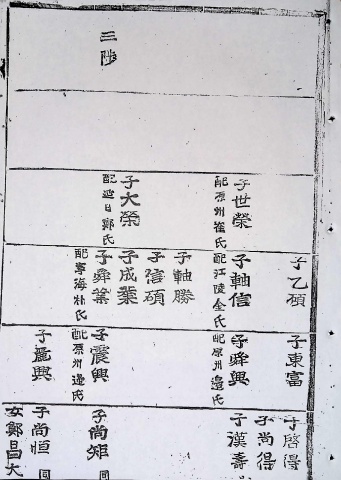 三陟
子世榮
配原州崔氏
子大榮
配延日鄭氏
子乙碩
子軸信
配江陵金氏
子軸勝
子信碩
子成業
子舜業
配寧海朴氏
子東富
子舜興
配原州邉氏
子震興
配原州邉氏
子麗興
子啓得
子尚得
子漢壽
子尚矩
同
子尚恒
同
女鄭昌大